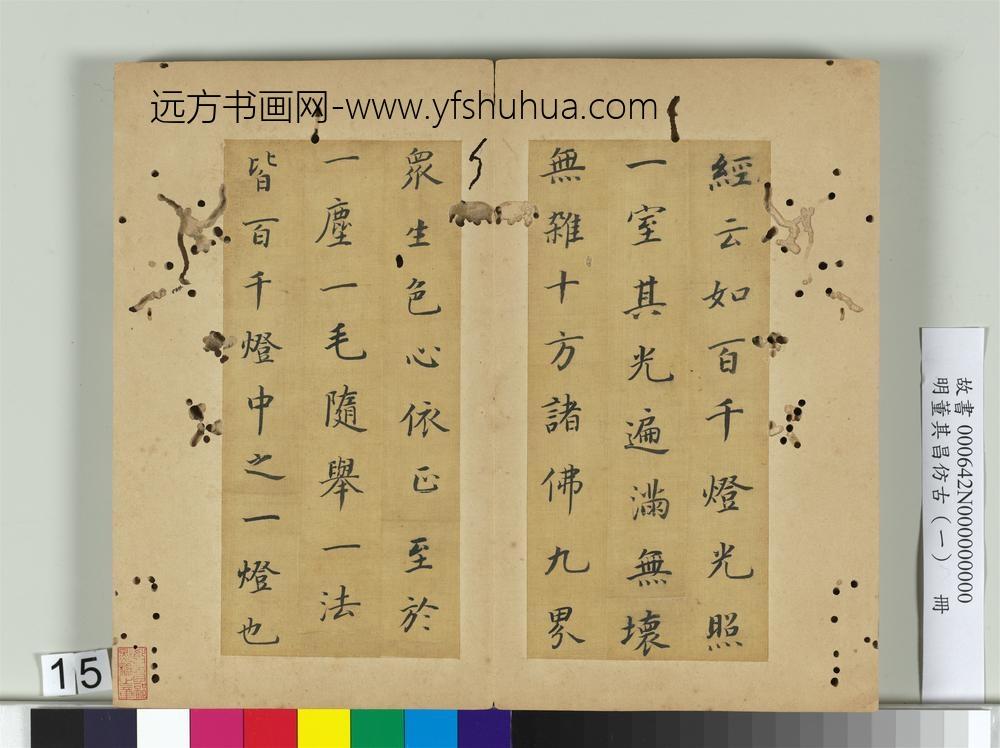 远方书画网-www.yfshuhua.com
經云如百千燈光照
一室其光遍滿無壞
無雜十方諸佛九界
眾生色心依正至於
一塵一毛隨舉一法
皆百千燈中之一燈也
故書 000642N000000000
明董其昌仿古(一) 冊
15